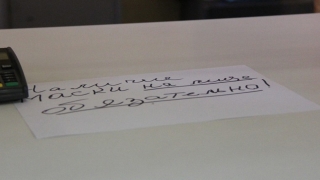 Наличие
маски на лице
обязательно!